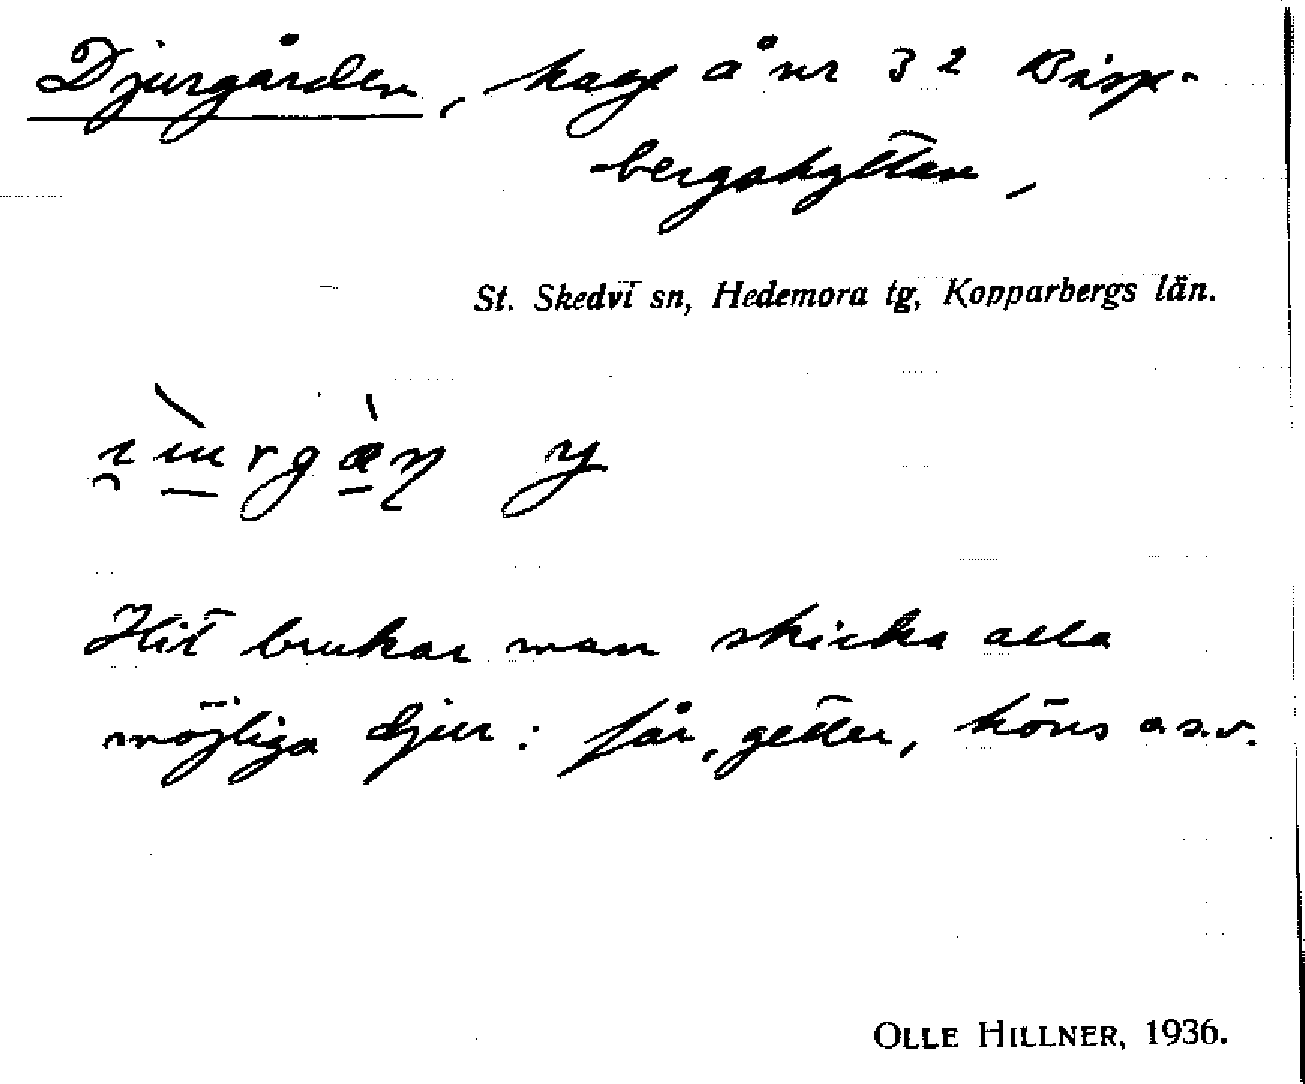 Djurgården, hage å nr 32 Bisp-
bergshyttan,
St. Skedvi sn, Hedemora tg, Kopparbergs län.
Hit brukar man skicka alla
möjliga djur: får, getter, höns o.s.v.
OLLE HILLNER, 1936.